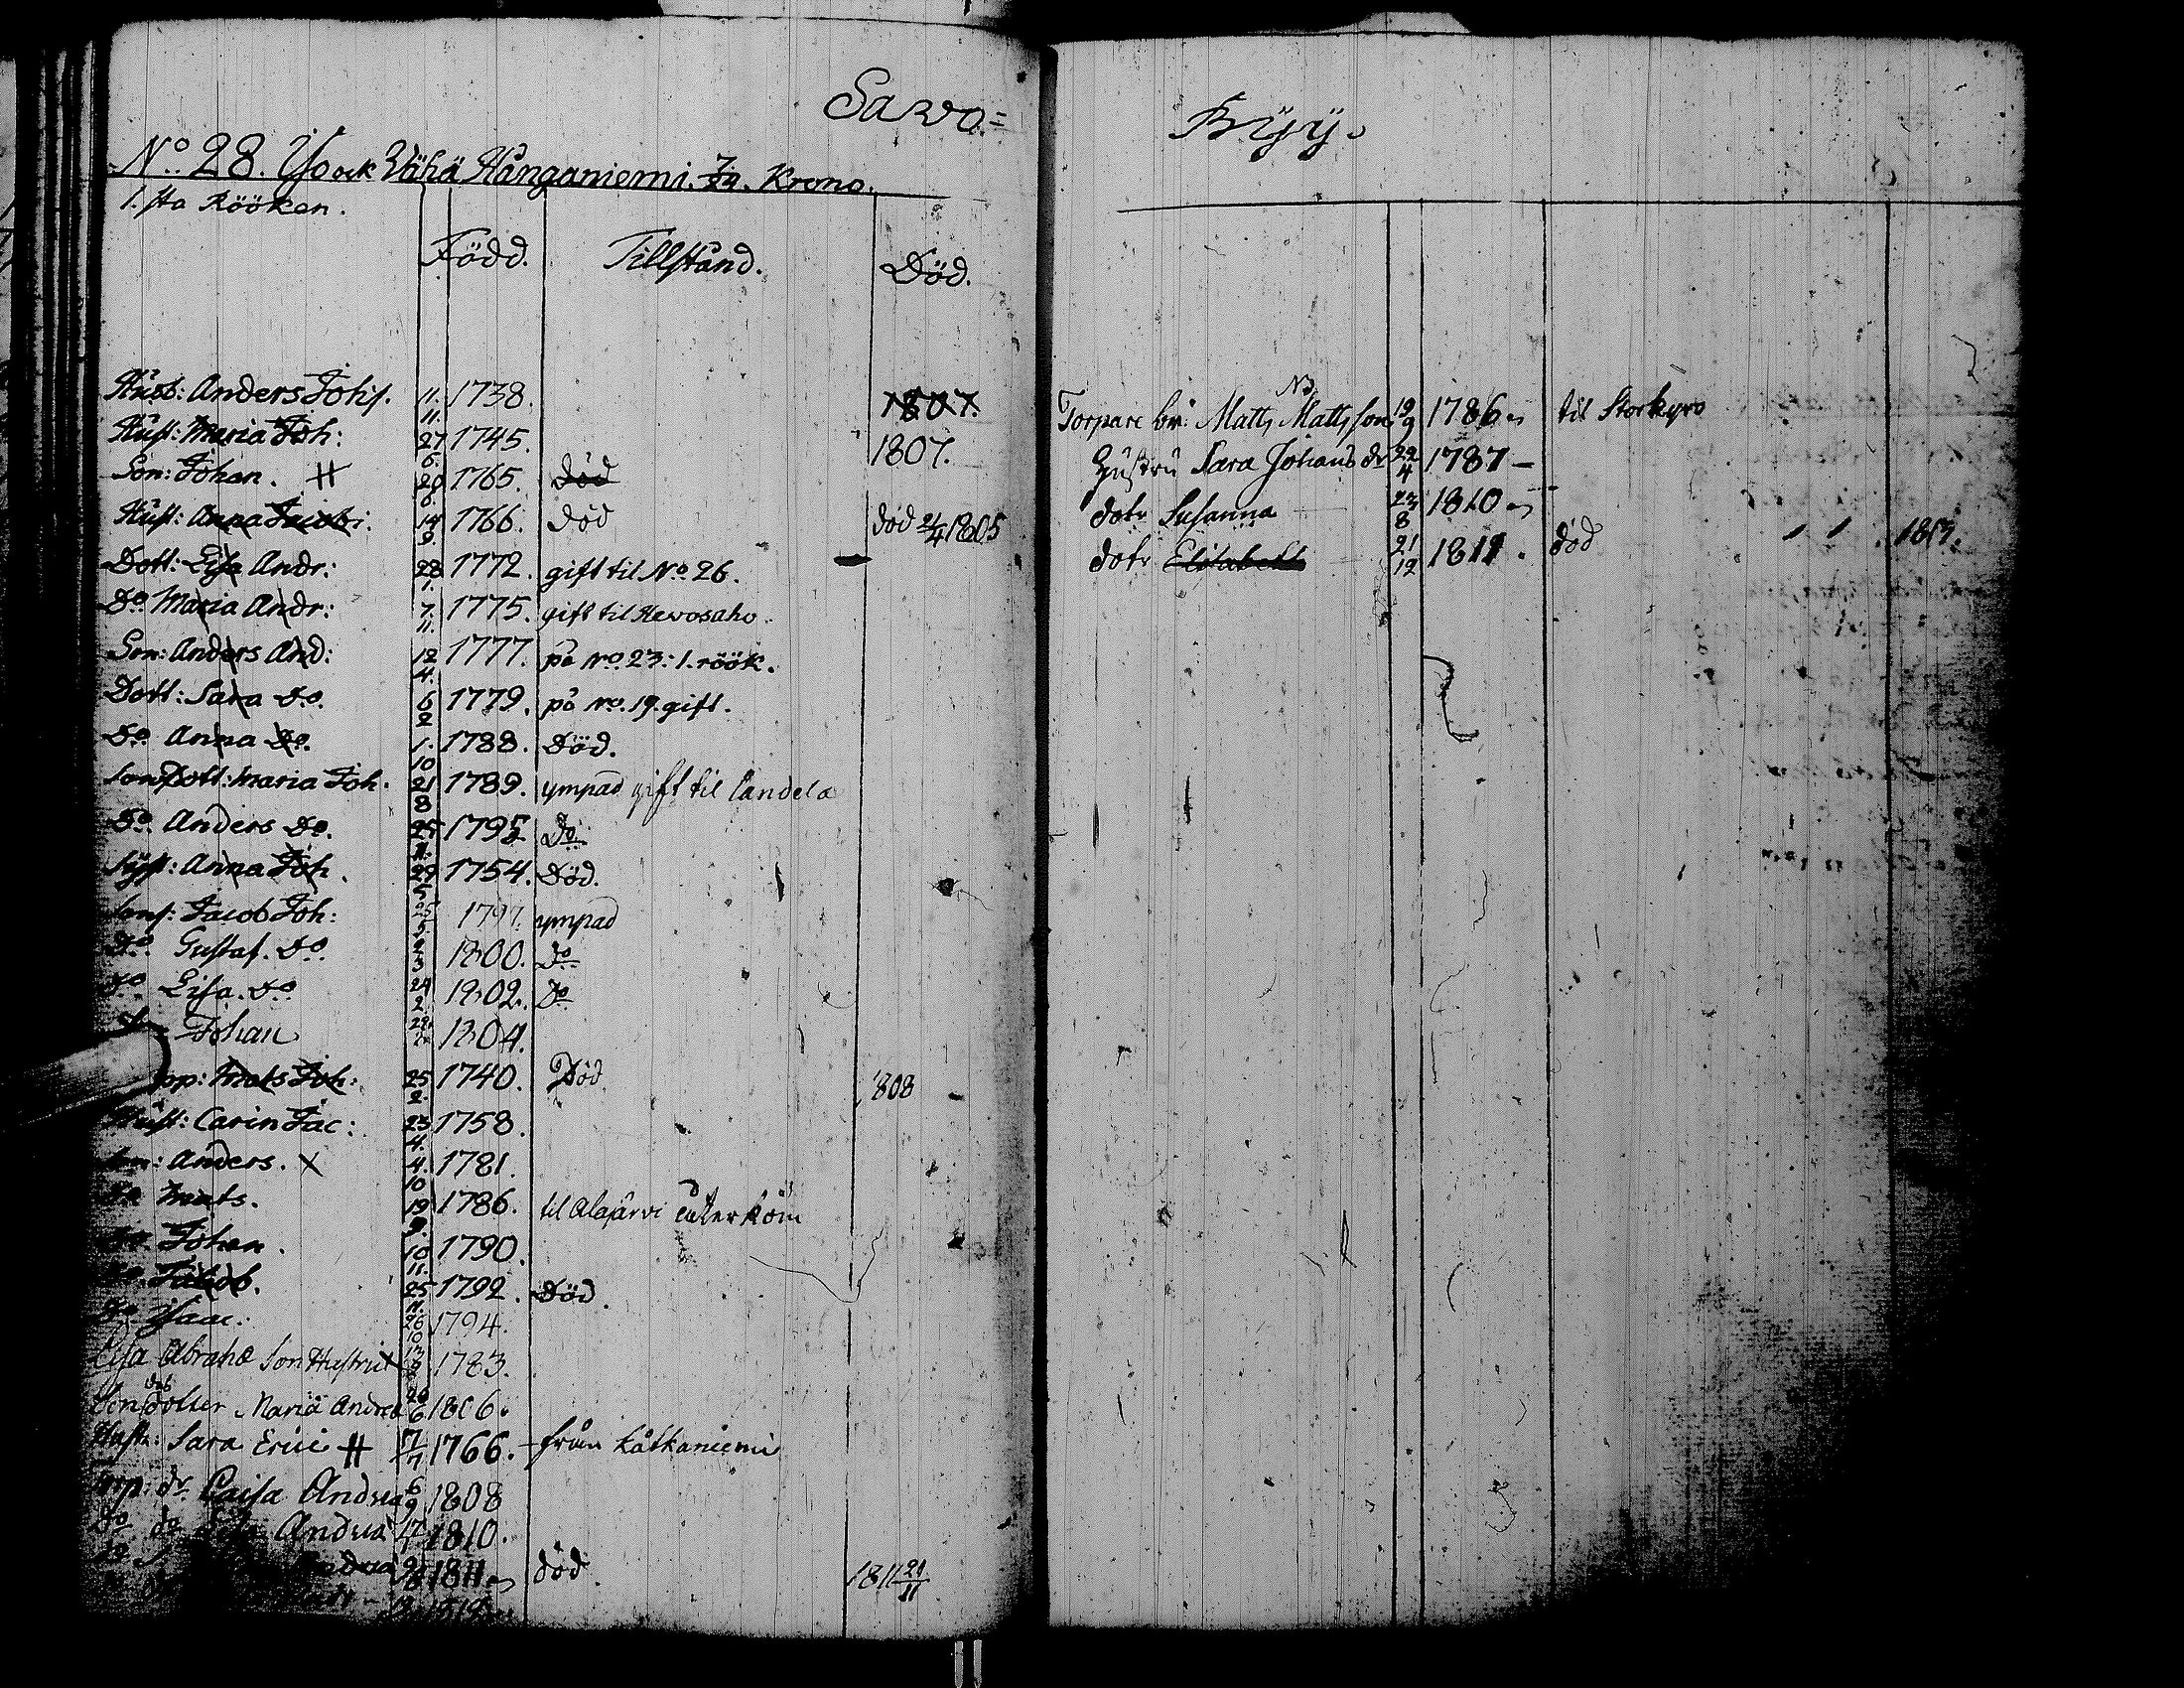 Savo=
No. 28. Iso och Wähä Kånganiemi. 7/24. Krono.
1.sta Rööken.
Född. Tillstånd. Död.
Husb: Anders Johs. 11. 11. 1738. 1807.
Hust: Maria Joh: 27 6. 1745. 1807.
Son: Johan. 20 6. 1765. Död
Hust: Anna Jacobi. 14 9. 1766. död död 2/4 1805
Dott: Lisa Andr: 28 1772. gift til No. 26.
Do Maria Andr: 7. 11. 1775. gift til Hevosaho.
Son: Anders And: 12 4. 1777. på No. 23: 1. röök.
Dott: Sara Do. 6 2 1779. på No. 19. gift.
Do Anna Do. 1. 10 1788. Död.
Sons Dott: Maria Joh. 21 8 1789. ympad gift til Candela
Do Anders Do. 25 1795 Do
Anna Joh. 29 5 1754. Död.
Sons: Jacob Joh: 25 5. 1797. ympad
Do Gustaf. Do 2 3 1800. Do
Do Lisa. Do 24 2. 1802. Do
Johan 29 1804.
Mats Joh: 25 2. 1740. Död 1808
Hust: Carin Jac: 23 4. 1758.
Son: Anders. X 4. 10 1781.
Do Mats. 19 9. 1786. til Alajärvi återkom
Do Johan. 10 11. 1790.
Do Jacob. 25 1792. Död.
Do Isaac. 26 10 1794.
Lisa Abrahæ Son Hustru 13 1783.
Sons dotter Maria Andreæ 20 6 1806.
Hustr: Sara Erici 7/7 1766. från Kätkaniemi
dr. Caisa Andreæ 6 9 1808
Do do Lisa Andreæ 17 1810.
1811 död 1811 21/11
Byy.
Torpare br: Matts Mattsson 19 9 1786 til Storkyro
Hustru Sara Johans dr 22 4 1787 –
dotr Susanna 23 8 1810
dotr Elisabeth 21 12 1811. död 1813.